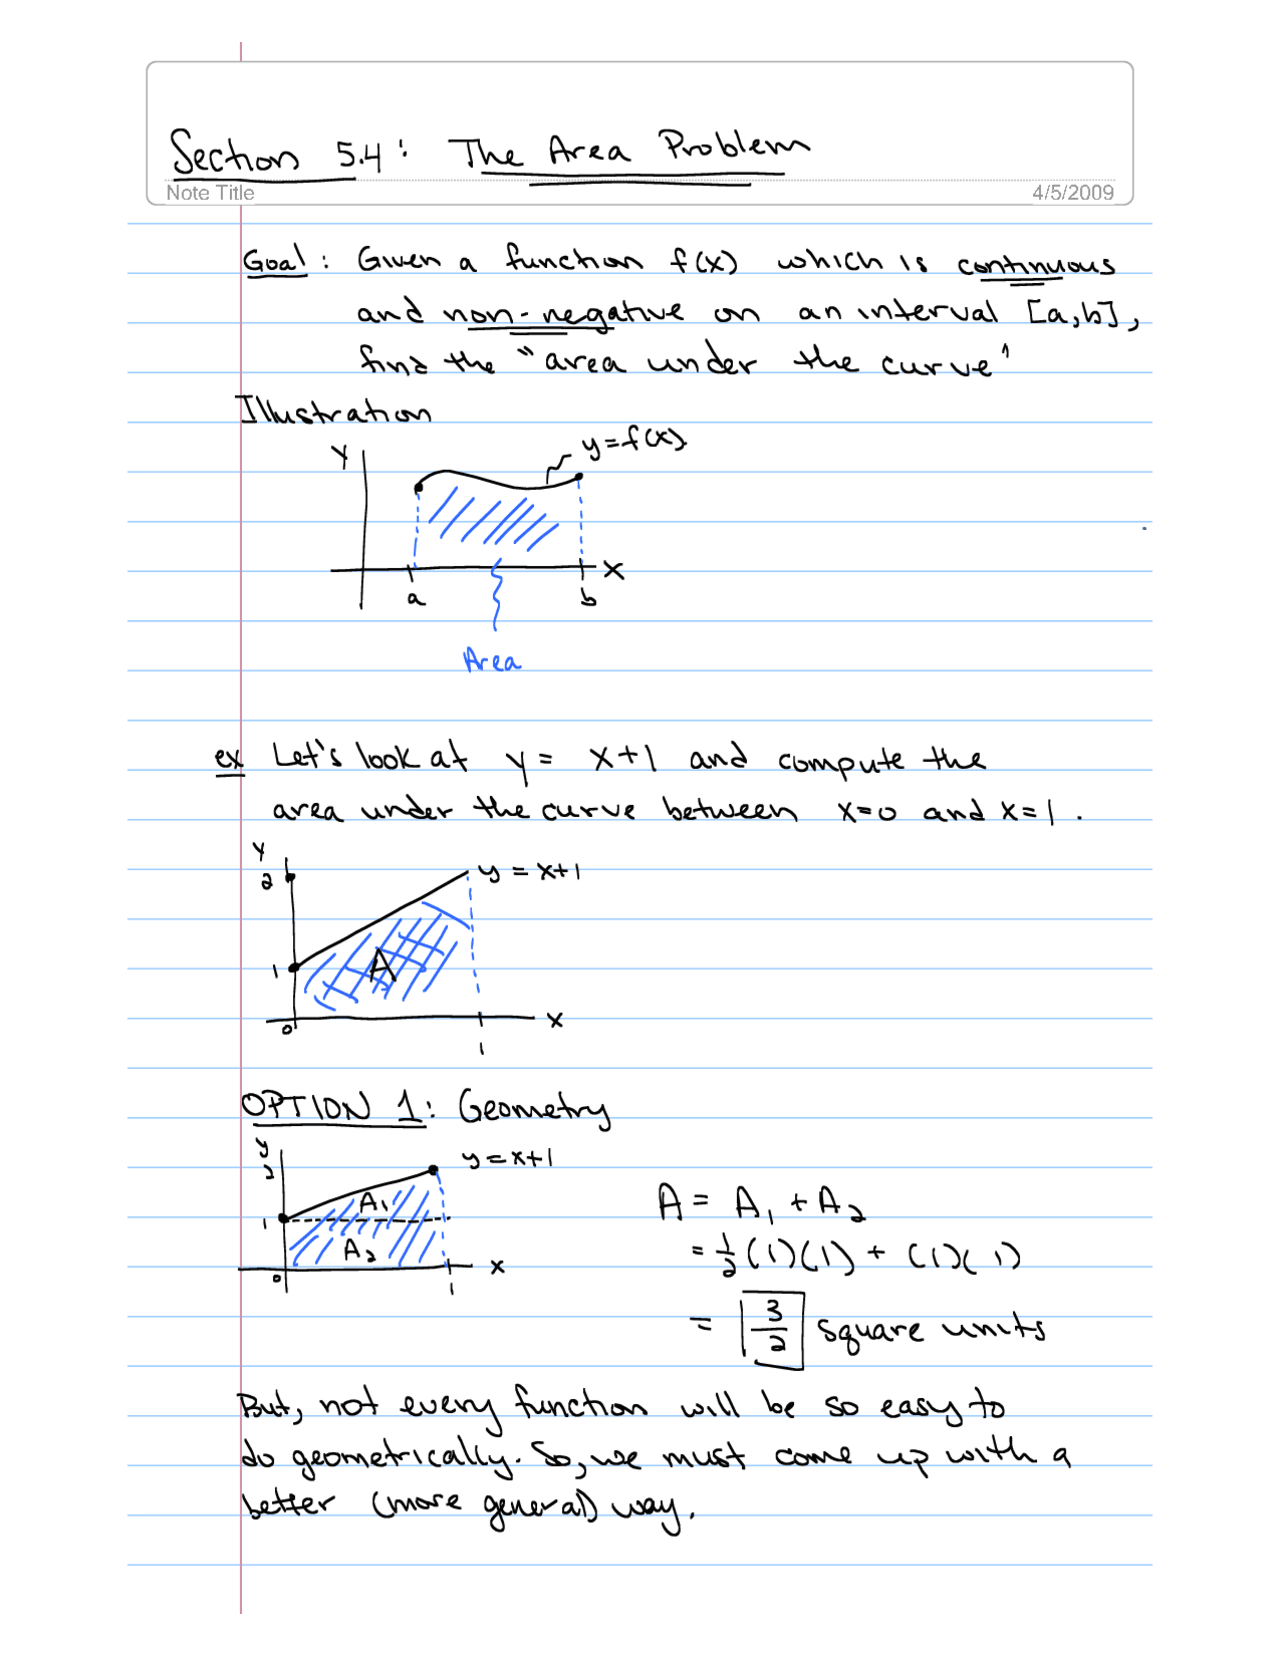 Section 5.4: The Area Problem
Note Title
4/5/2009
Goal: Given a function f(x) which is continuous
and non-negative on an interval [a,b],
find the "area under the curve"
Illustration
y
y=f(x)
x
a
b
Area
ex Let's look at y = x+1 and compute the
area under the curve between x=0 and x=1.
y
2
y = x+1
1
A
0
x
1
OPTION 1: Geometry
y
2
y=x+1
A₁
1
A₂
0
x
1
A = A₁ + A₂
= ½(1)(1) + (1)(1)
= 3/2 square units
But, not every function will be so easy to
do geometrically. So, we must come up with a
better (more general) way.